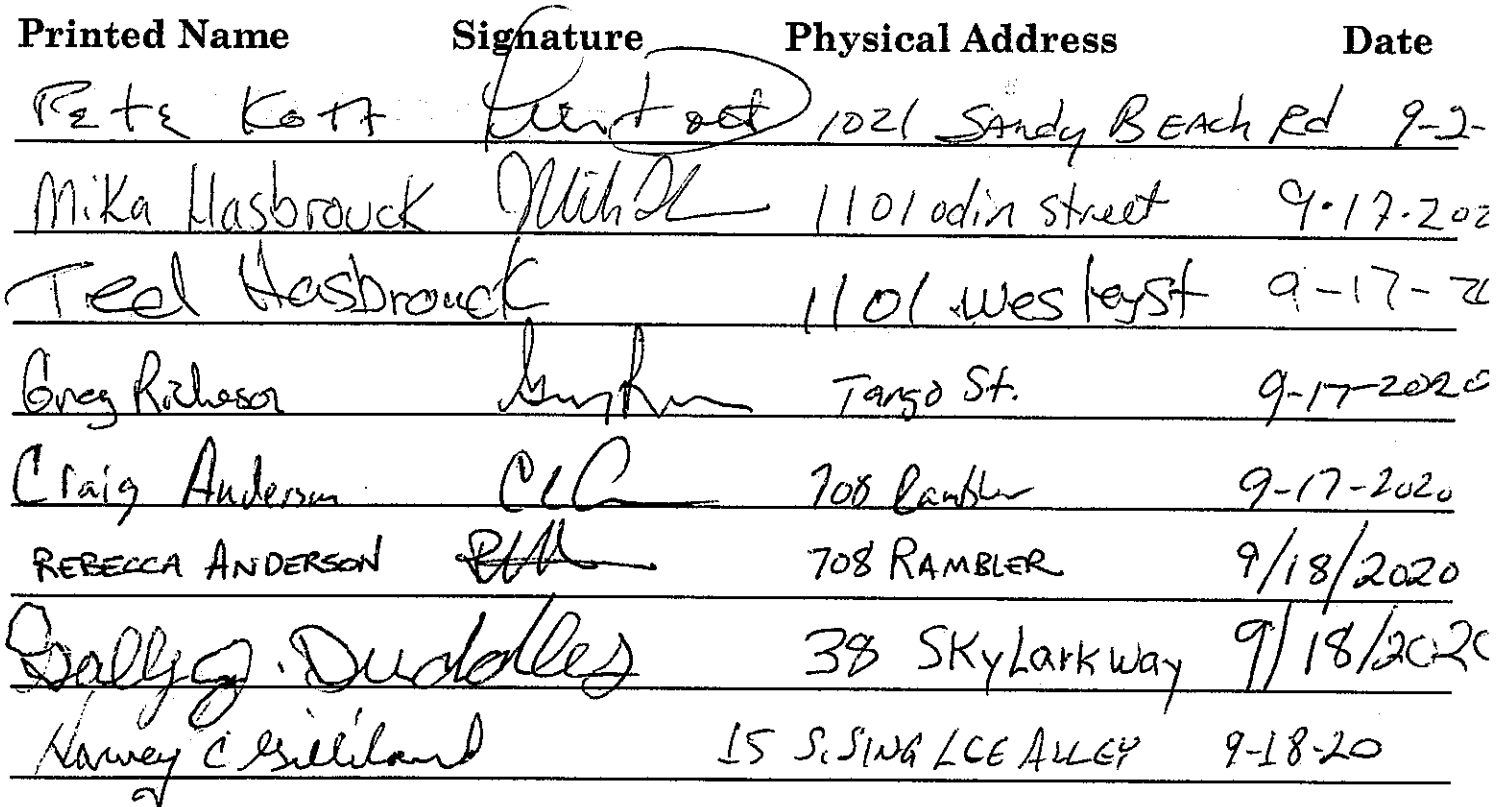 Printed Name Signature Physical Address Date
Pete Kott 1021 SAndy BEAch Rd 9-2-
Mika Hasbrouck 1101 odin street 9-17-202
Ted Hasbrouck 1101 Wesleyst 9-17-20
Greg Richeson Tango St. 9-17-2020
Craig Anderson 708 Rambler 9-17-2020
REBECCA ANDERSON 708 RAMBLER 9/18/2020
Sally J. Duddles 38 SKyLark way 9/18/2020
Harvey C Gilliland 15 S. SINGLEE ALLEY 9-18-20